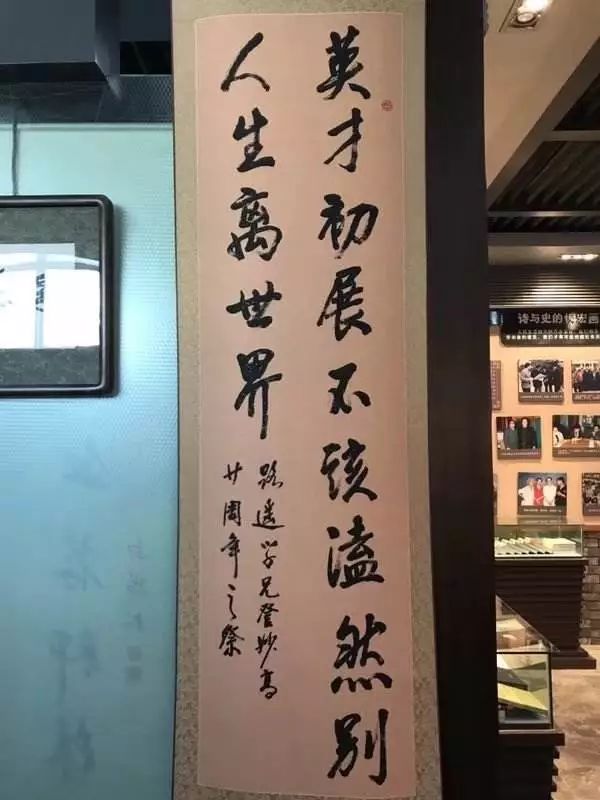 英才初展不该溘然别
人生离世界
路遥学兄登妙高
廿周年之祭
诗与史的恢宏画